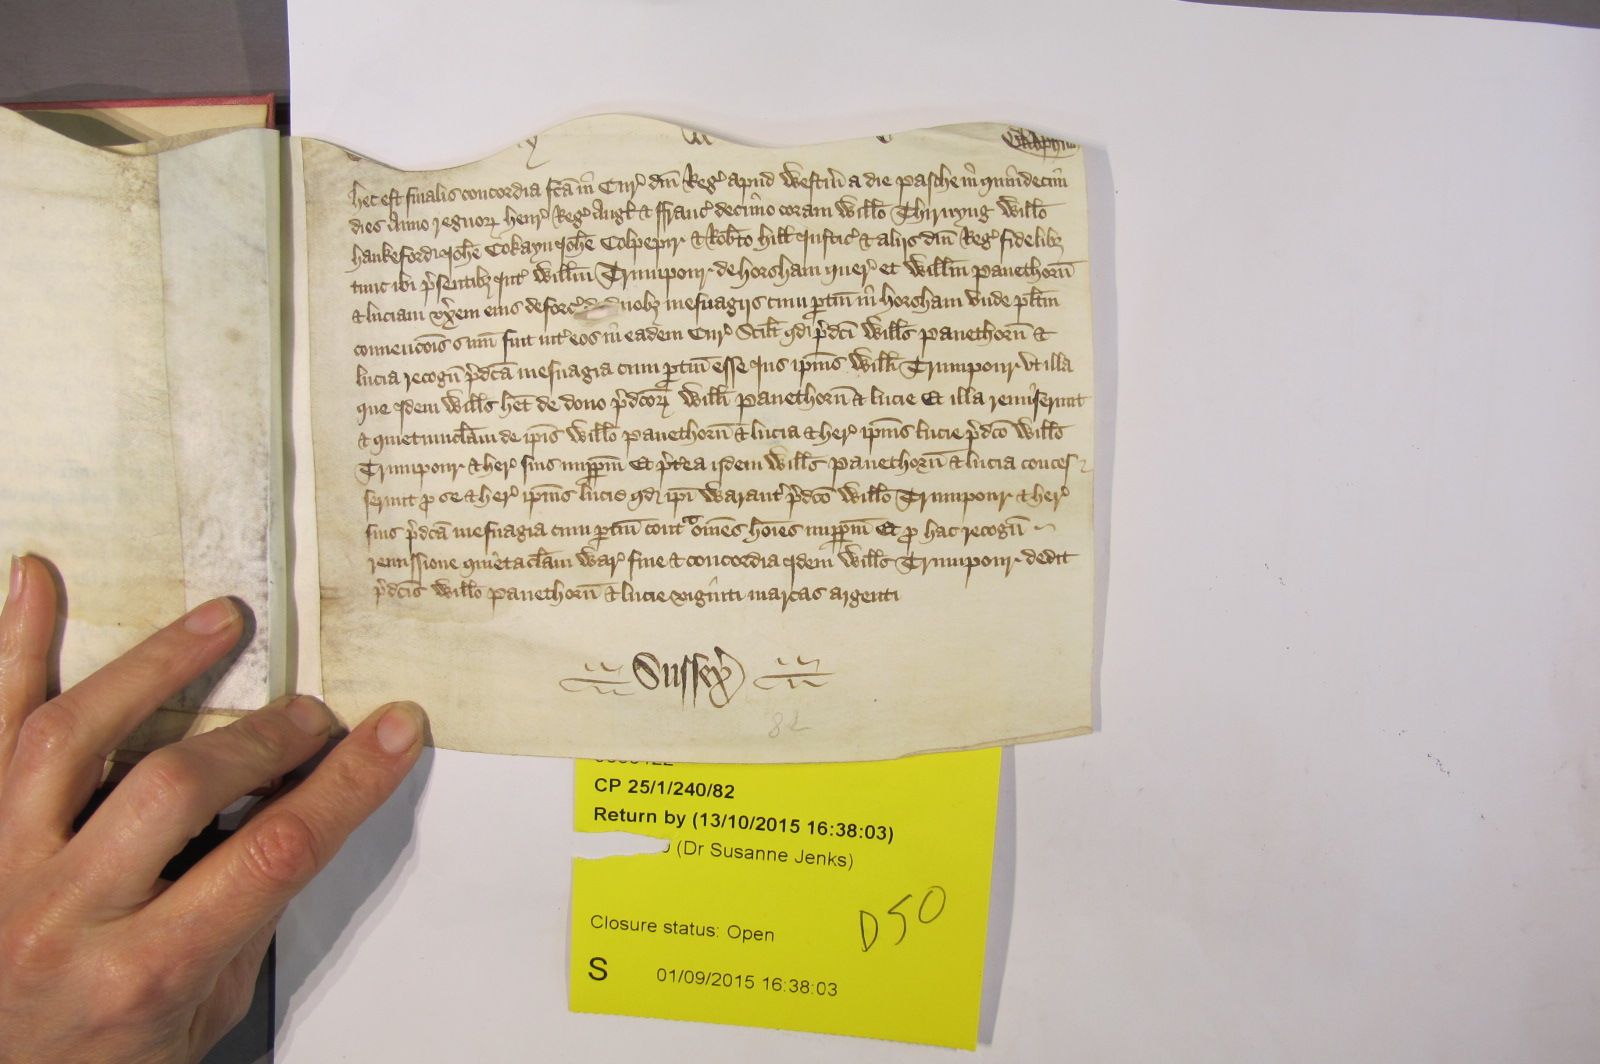 hec est finalis concordia fc̄a in Cur' dn̄i Reg' apud Westm̄ a die pasche in quindecim
dies Anno regnor' henr' Reg' Angl' & ffranc' decimo coram Willo Thirnyng Willo
hankeford Joh̄e Cokayn Joh̄e Colpepir & Rob̄to hill Justic' & aliis dn̄i Reg' fidelib3
tunc ibi p'sentib3 Int' Willm̄ Trumpour de horsham quer' et Willm̄ panethorn̄
& luciam vx'em eius deforc' de duob3 mesuagiis cum ptin̄ in horsham vnde pl̄tm
convenc̄ois sum̄ fuit int' eos in eadem Cur' Scilt qd p'dc̄i Wills panethorn̄ &
lucia recogn̄ p'dc̄a mesuagia cum ptin̄ esse Jus ip̄ius Willi Trumpour vt illa
que Idem Wills het de dono p'dc̄or' Willi panethorn̄ & lucie Et illa remiserunt
& quietumclam̄ de ip̄is Willo panethorn̄ & lucia & her' ip̄ius lucie p'dc̄o Willo
Trumpour & her' suis imppm̄ Et p't'ea idem Wills panethorn̄ & lucia conces
serunt p se & her' ip̄ius lucie qd ip̄i Warant' p'dc̄o Willo Trumpour & her'
suis p'dc̄a mesuagia cum ptin̄ contᵃ om̄es hoīes imppm̄ Et p hac recogn̄
remissione quietaclam̄ War' fine & concordia Idem Wills Trumpour dedit
p'dc̄is Willo panethorn̄ & lucie viginti marcas argenti
Sussex'
82
CP 25/1/240/82
Return by (13/10/2015 16:38:03)
(Dr Susanne Jenks)
D50
Closure status: Open
S 01/09/2015 16:38:03